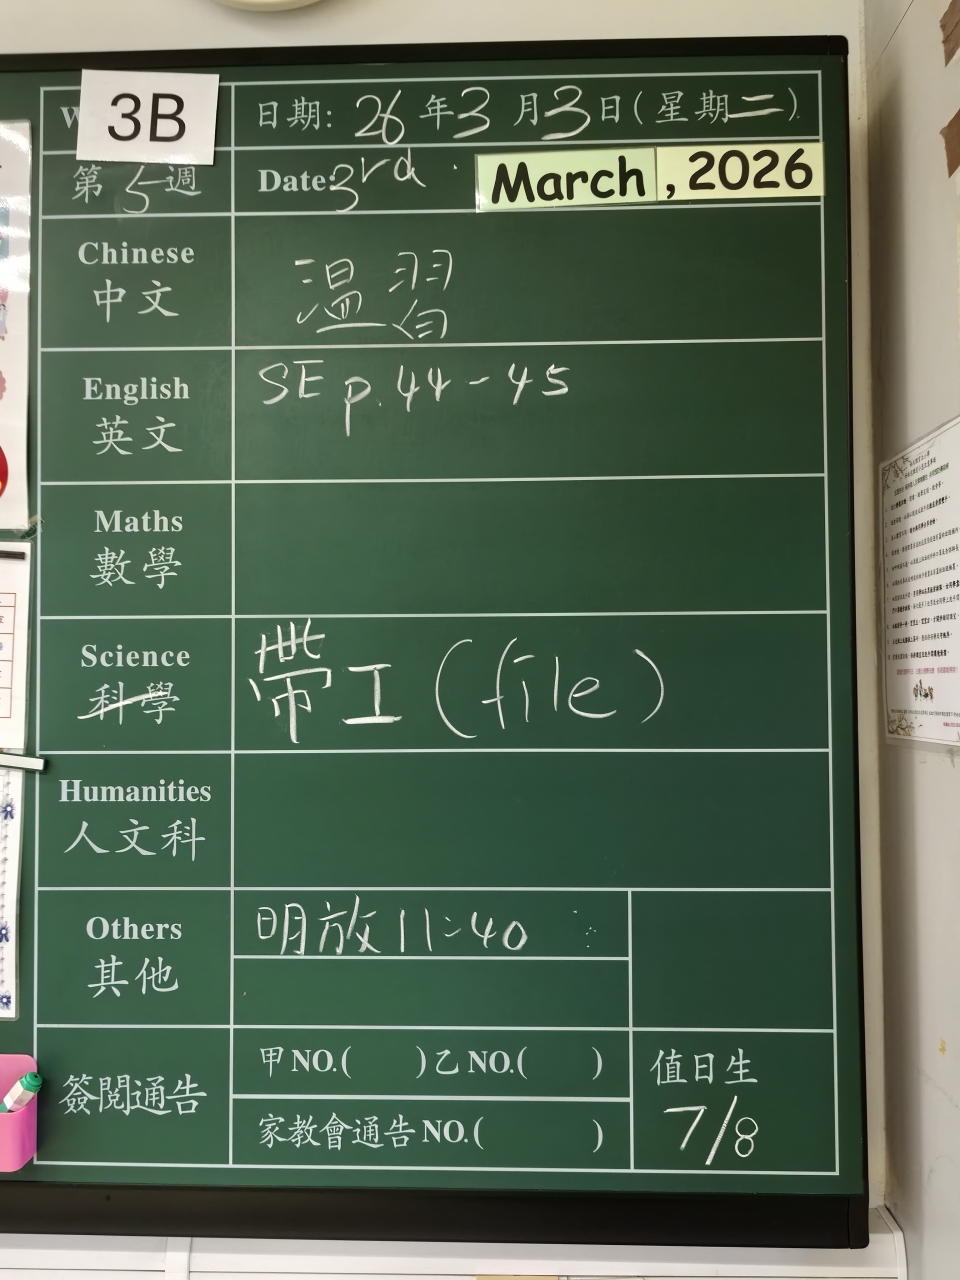 3B
日期: 26年3月3日(星期二)
第5週
Date: 3rd March, 2026
Chinese
中文
溫習
English
英文
SE p.44-45
Maths
數學
Science
科學
帶工(file)
Humanities
人文科
Others
其他
明放11:40
簽閱通告
甲NO.( )乙NO.( )
家教會通告NO.( )
值日生
7/8